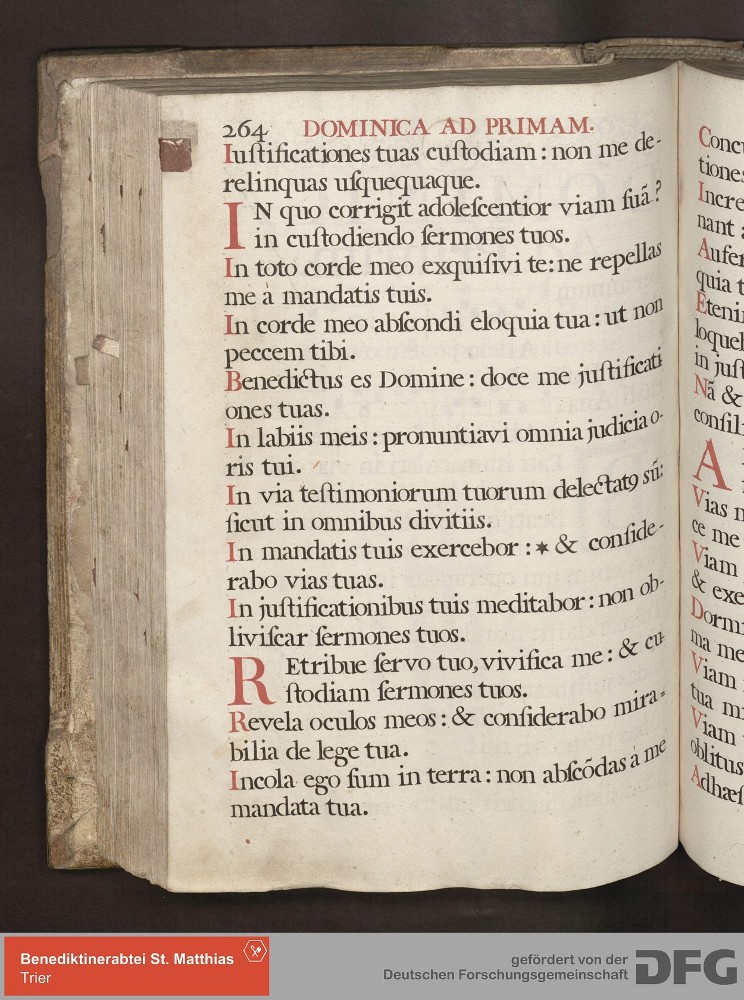 264 DOMINICA AD PRIMAM.
Iuſtificationes tuas cuſtodiam : non me de-
relinquas uſquequaque.
IN quo corrigit adoleſcentior viam ſuã?
in cuſtodiendo ſermones tuos.
In toto corde meo exquiſivi te: ne repellas
me à mandatis tuis.
In corde meo abſcondi eloquia tua : ut non
peccem tibi.
Benedictus es Domine : doce me juſtificati
ones tuas.
In labiis meis : pronuntiavi omnia judicia o-
ris tui.
In via teſtimoniorum tuorum delectatꝰ sũ:
ſicut in omnibus divitiis.
In mandatis tuis exercebor : * & conſide-
rabo vias tuas.
In juſtificationibus tuis meditabor : non ob-
liviſcar ſermones tuos.
REtribue ſervo tuo, vivifica me : & cu-
ſtodiam ſermones tuos.
Revela oculos meos : & conſiderabo mira-
bilia de lege tua.
Incola ego ſum in terra : non abſcõdas à me
mandata tua.
Conc
tiones
Incre
nant
Aufer
quia t
Eteni
loqueb
in juſt
Nã &
conſil
A
Vias m
ce me
Viam
& exe
Dormi
ma me
Viam
tua mi
Viam
oblitus
Adhæſ
Benediktinerabtei St. Matthias
Trier
gefördert von der
Deutschen Forschungsgemeinschaft
DFG